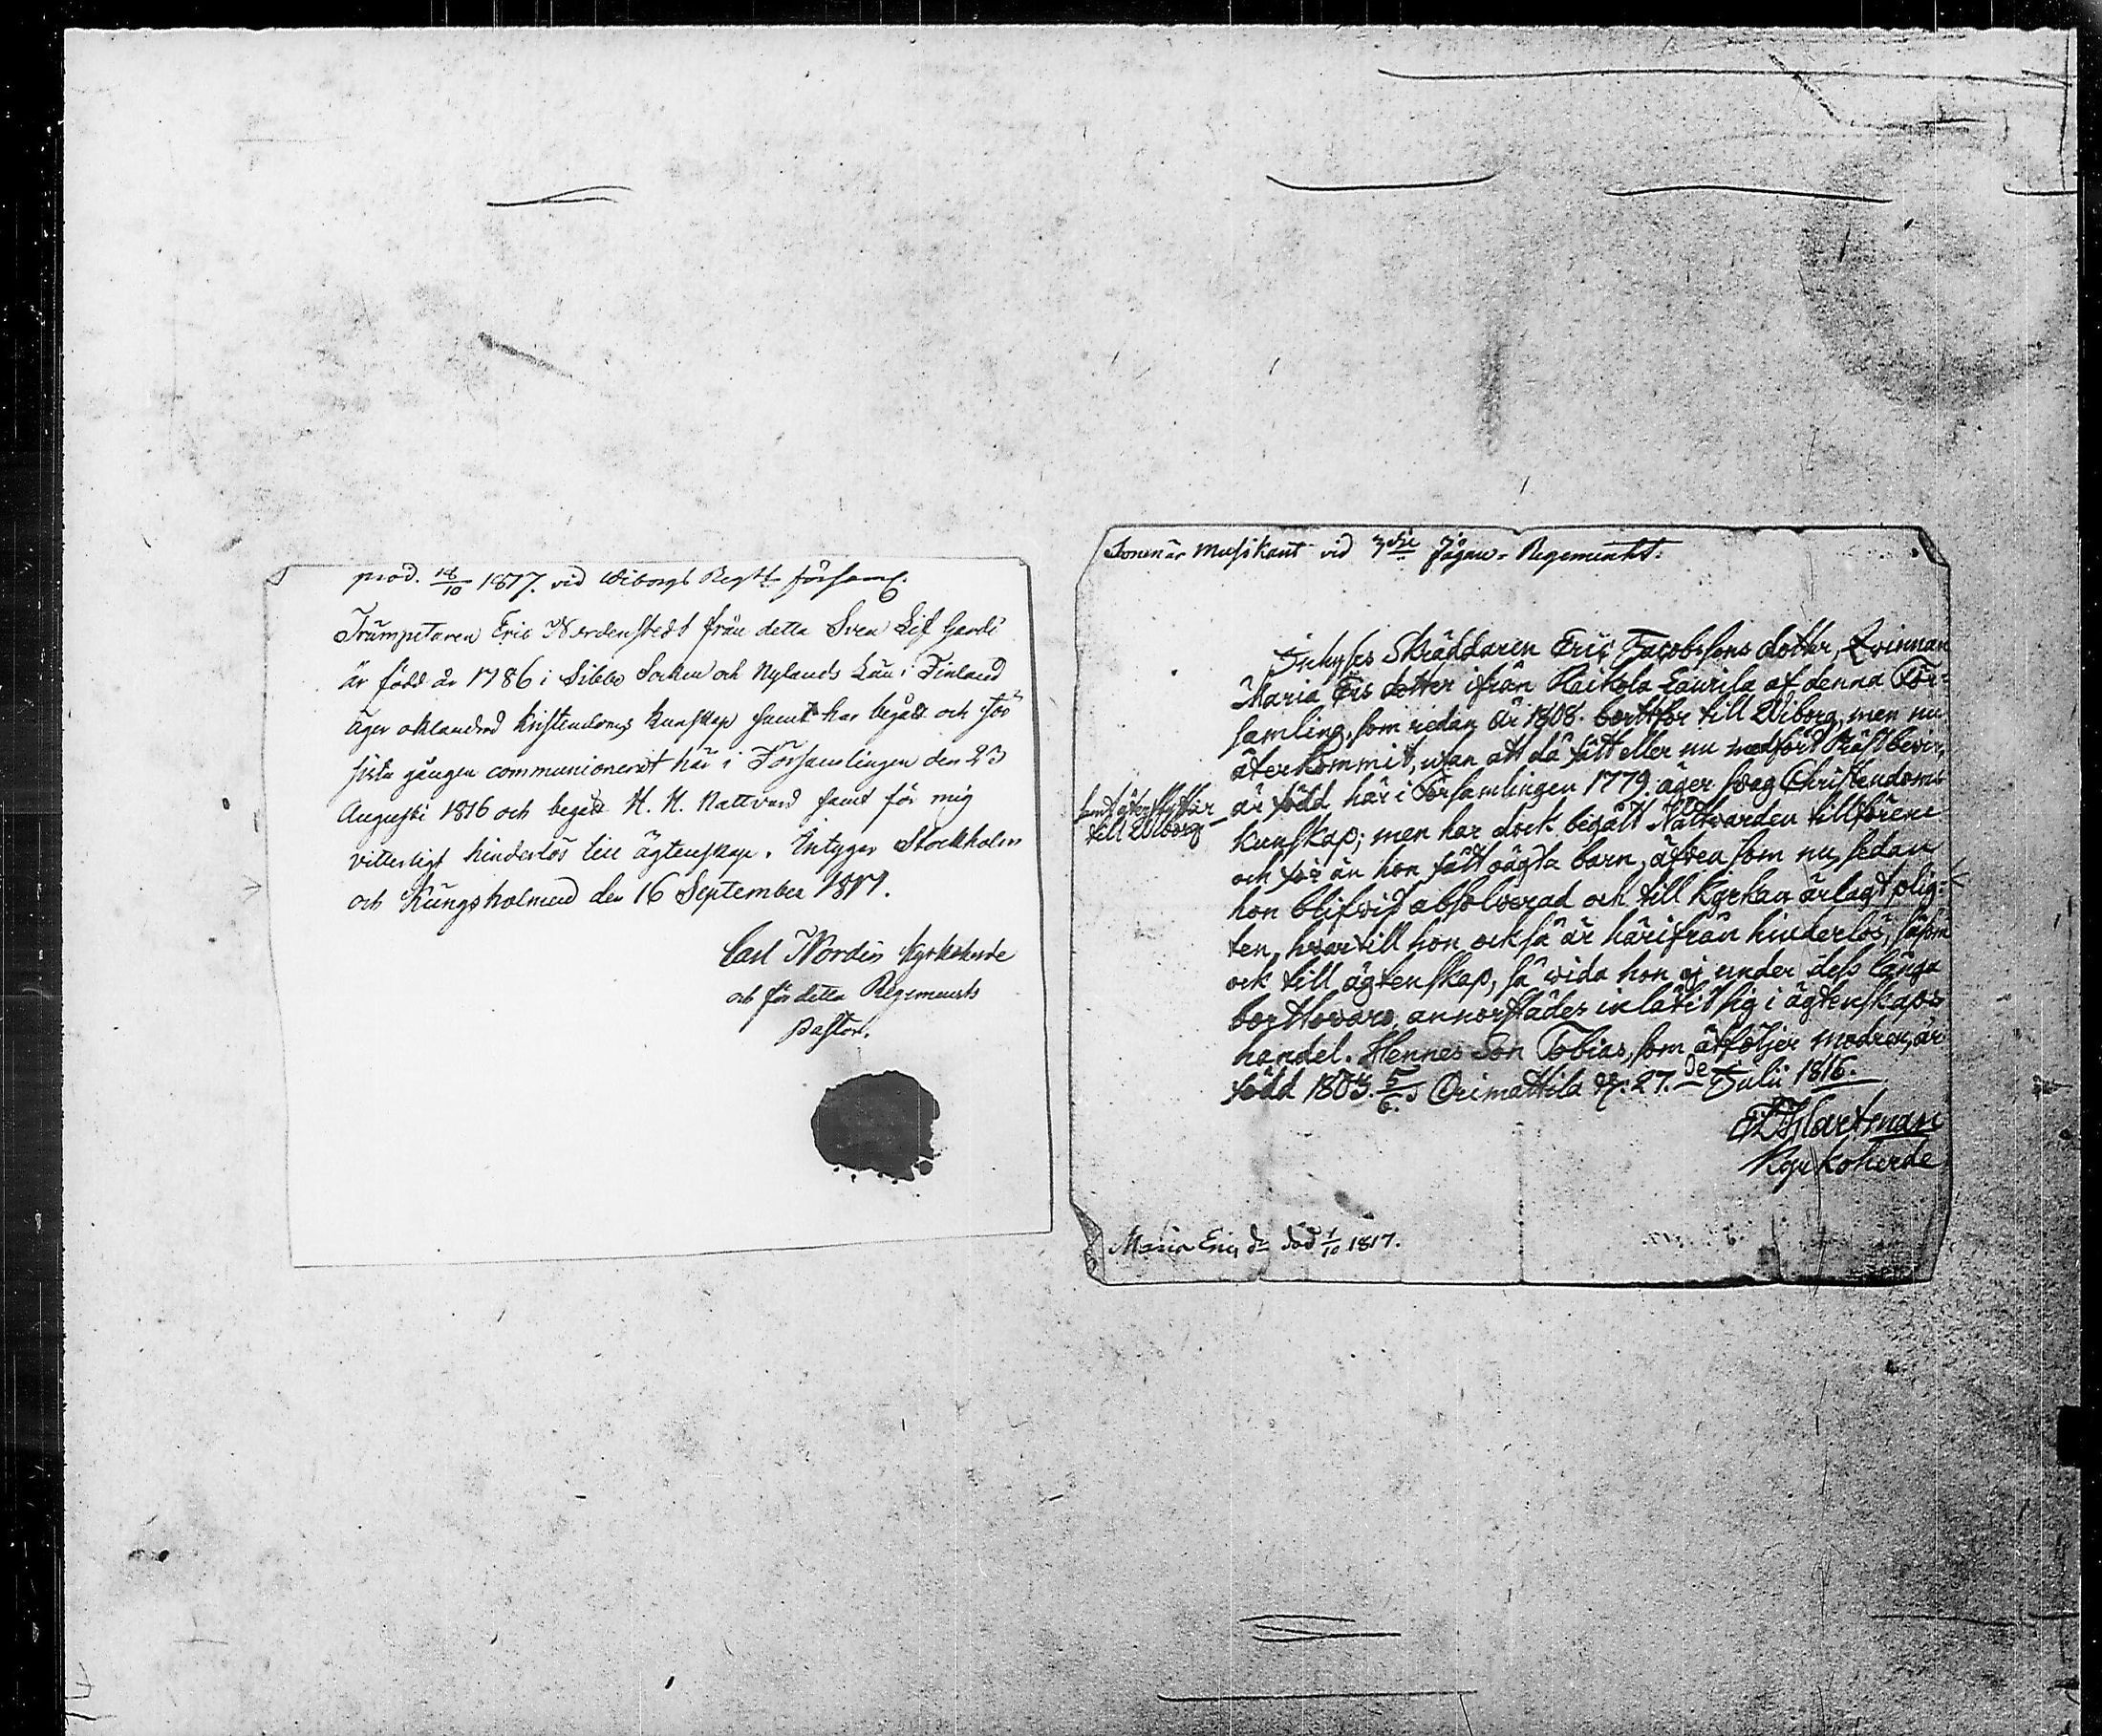 prod. 18/10 1817. vid Wiborgs Regtt församl.
Trumpetaren Eric Nordenstedt från detta Svea Lif Garde
är född år 1786 i Sibbo Socken och Nylands Län i Finland
äger oklandrad Kristendoms kunskap samt har begått och för
sista gången communicerat här i Församlingen den 23
Augusti 1816 och begått H. H. Nattvard samt för mig
vitterligt hinderlös till ägtenskap. Intygar Stockholm
och Kungsholmen den 16 September 1817.
Carl Nordin Kyrkoherde
och för detta Regements
Pastor.
Sonen är Musikant vid 3die Jägar-Regementet.
Betyges Skräddaren Eric Jacobssons dotter, Qvinnan
Maria Ers dotter ifrån Haikola Laurila af denna För-
samling, som redan år 1808. bortfor till Wiborg, men nu
återkommit, utan att då fått eller nu medfört Prästbevis,
är född här i Församlingen 1779. äger svag Christendoms
samt återflyttar
till Wiborg
kunskap; men har dock begått Nattvarden tillförene
och för än hon fått oägta barn, äfven som nu, sedan
hon blifvit absolverad och till Kyrkan ärlagt plig-
ten, hvartill hon också är härifrån hinderlös, såsom
ock till ägtenskap, så vida hon ej under dess långa
bortovaro annorstädes inlåtit sig i ägtenskaps
handel. Hennes Son Tobias, som åtföljer modren, är
född 1803. 5/6. Orimattila d. 27.de Julii 1816.
Hartman
Kyrkoherde
Maria Erics dr död 1/10 1817.